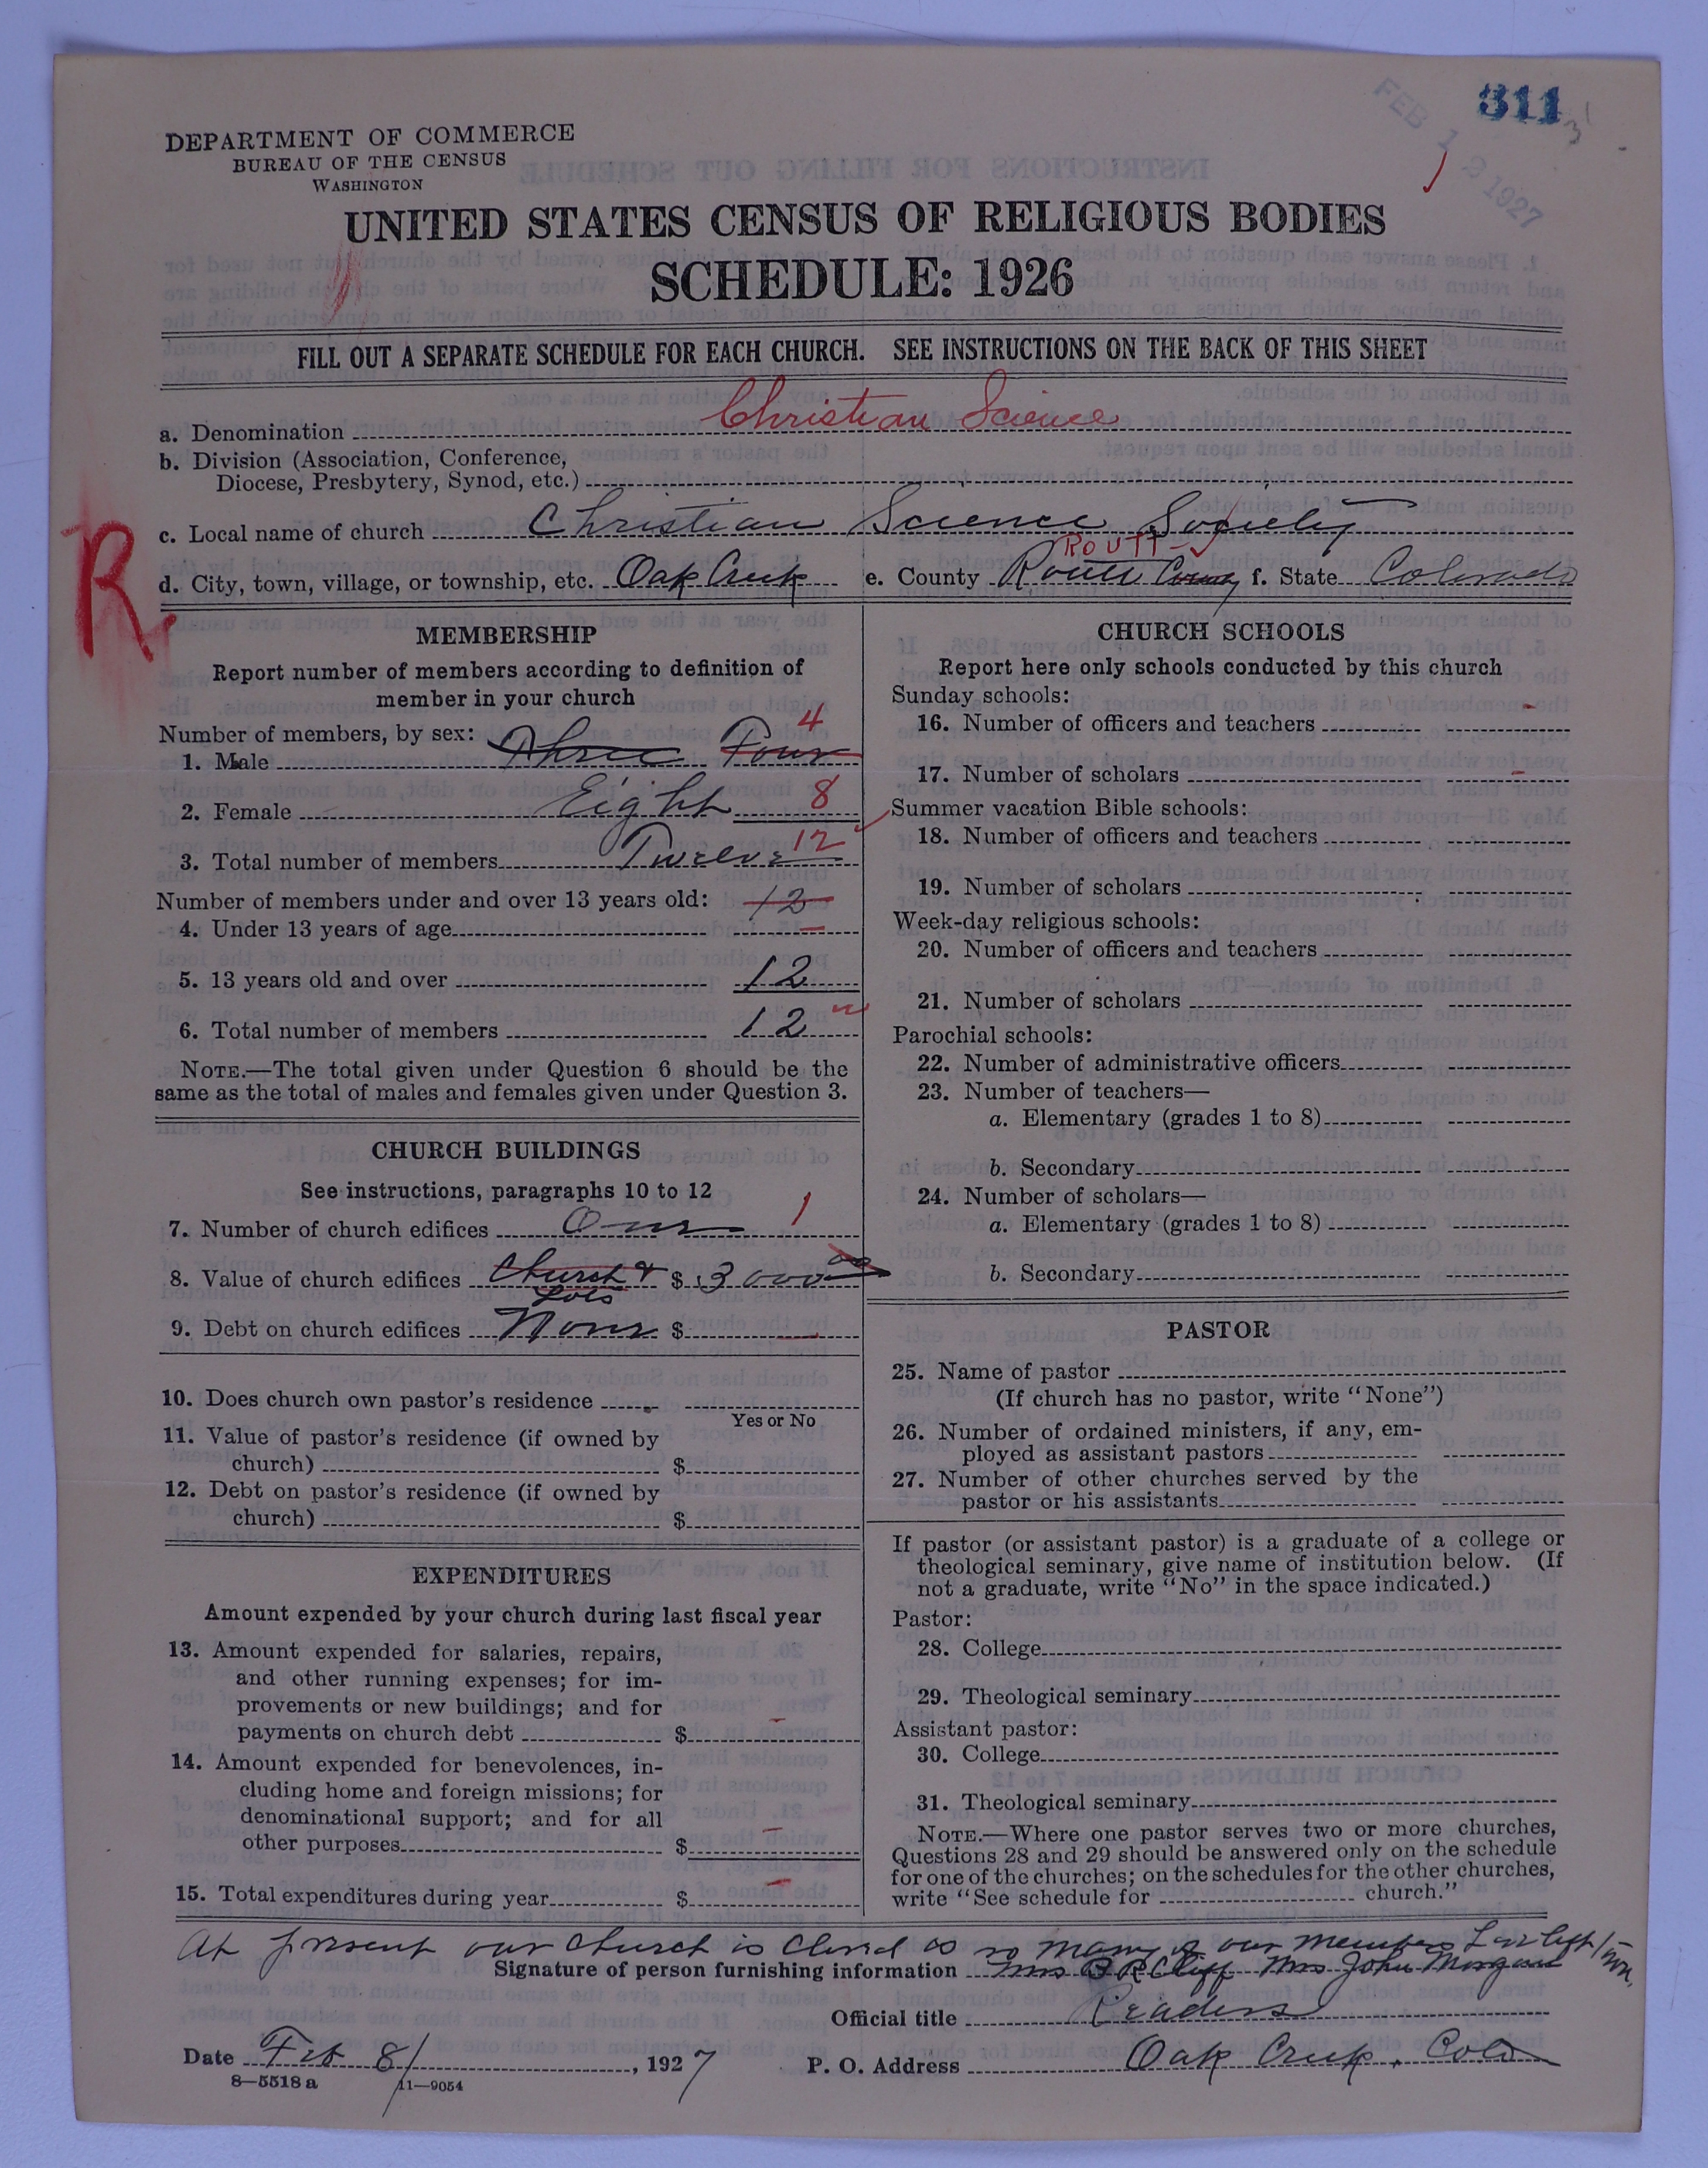 311
FEB 1 1927
DEPARTMENT OF COMMERCE
BUREAU OF THE CENSUS
WASHINGTON
UNITED STATES CENSUS OF RELIGIOUS BODIES
SCHEDULE: 1926
FILL OUT A SEPARATE SCHEDULE FOR EACH CHURCH. SEE INSTRUCTIONS ON THE BACK OF THIS SHEET
a. Denomination Christian Science
b. Division (Association, Conference,
Diocese, Presbytery, Synod, etc.)
c. Local name of church Christian Science Society
ROUTT
d. City, town, village, or township, etc. Oak Creek e. County Routt County f. State Colorado
R
MEMBERSHIP
Report number of members according to definition of
member in your church
Number of members, by sex: 4
1. Male Three Four
2. Female Eight 8
3. Total number of members Twelve 12
Number of members under and over 13 years old: 12
4. Under 13 years of age —
5. 13 years old and over 12
6. Total number of members 12
NOTE.—The total given under Question 6 should be the
same as the total of males and females given under Question 3.
CHURCH BUILDINGS
See instructions, paragraphs 10 to 12
7. Number of church edifices One 1
8. Value of church edifices Church & Lots $ 3000 00
9. Debt on church edifices None $ —
10. Does church own pastor's residence
Yes or No
11. Value of pastor's residence (if owned by
church) $
12. Debt on pastor's residence (if owned by
church) $
EXPENDITURES
Amount expended by your church during last fiscal year
13. Amount expended for salaries, repairs,
and other running expenses; for im-
provements or new buildings; and for
payments on church debt $ —
14. Amount expended for benevolences, in-
cluding home and foreign missions; for
denominational support; and for all
other purposes $ —
15. Total expenditures during year $ —
CHURCH SCHOOLS
Report here only schools conducted by this church
Sunday schools:
16. Number of officers and teachers -
17. Number of scholars -
Summer vacation Bible schools:
18. Number of officers and teachers
19. Number of scholars
Week-day religious schools:
20. Number of officers and teachers
21. Number of scholars
Parochial schools:
22. Number of administrative officers
23. Number of teachers—
a. Elementary (grades 1 to 8)
b. Secondary
24. Number of scholars—
a. Elementary (grades 1 to 8)
b. Secondary
PASTOR
25. Name of pastor
(If church has no pastor, write "None")
26. Number of ordained ministers, if any, em-
ployed as assistant pastors
27. Number of other churches served by the
pastor or his assistants
If pastor (or assistant pastor) is a graduate of a college or
theological seminary, give name of institution below. (If
not a graduate, write "No" in the space indicated.)
Pastor:
28. College
29. Theological seminary
Assistant pastor:
30. College
31. Theological seminary
NOTE.—Where one pastor serves two or more churches,
Questions 28 and 29 should be answered only on the schedule
for one of the churches; on the schedules for the other churches,
write "See schedule for church."
At present our church is closed as so many of our members have left town.
Signature of person furnishing information Mrs B R Cliff Mrs John Morgan
Official title Readers
Date Feb 8/, 1927 P. O. Address Oak Creek. Colo
8—5518 a 11—9054